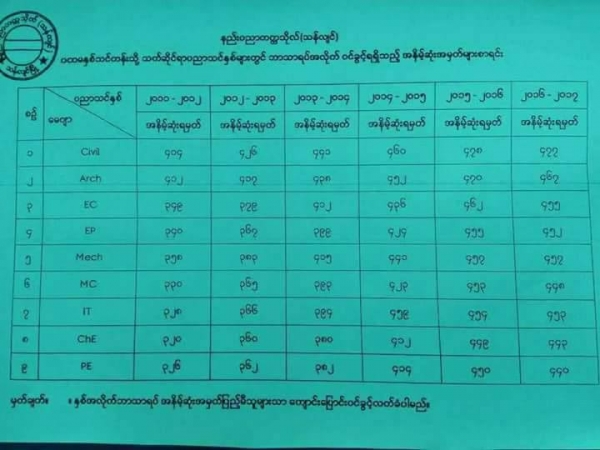 နည်းပညာတက္ကသိုလ်(သန်လျင်)
ပထမနှစ်သင်တန်းသို့ သက်ဆိုင်ရာပညာသင်နှစ်များတွင် ဘာသာရပ်အလိုက် ဝင်ခွင့်ရရှိသည့် အနိမ့်ဆုံးအမှတ်များစာရင်း
စဉ် ပညာသင်နှစ် မေဂျာ ၂၀၁၁ - ၂၀၁၂ ၂၀၁၂ - ၂၀၁၃ ၂၀၁၃ - ၂၀၁၄ ၂၀၁၄ - ၂၀၁၅ ၂၀၁၅ - ၂၀၁၆ ၂၀၁၆ - ၂၀၁၇
အနိမ့်ဆုံးရမှတ် အနိမ့်ဆုံးရမှတ် အနိမ့်ဆုံးရမှတ် အနိမ့်ဆုံးရမှတ် အနိမ့်ဆုံးရမှတ် အနိမ့်ဆုံးရမှတ်
၁ Civil ၄၁၄ ၄၂၆ ၄၄၁ ၄၆၀ ၄၇၈ ၄၇၇
၂ Arch ၄၁၂ ၄၁၇ ၄၃၈ ၄၅၂ ၄၇၀ ၄၆၇
၃ EC ၃၄၉ ၃၇၉ ၄၁၂ ၄၃၆ ၄၆၂ ၄၅၅
၄ EP ၃၄၀ ၃၆၇ ၃၉၉ ၄၂၄ ၄၅၅ ၄၅၂
၅ Mech ၃၅၈ ၃၈၃ ၄၁၅ ၄၄၁ ၄၅၇ ၄၅၇
၆ MC ၃၃၀ ၃၆၅ ၃၉၃ ၄၂၃ ၄၅၃ ၄၄၈
၇ IT ၃၂၈ ၃၆၆ ၃၉၄ ၄၅၉ ၄၅၄ ၄၅၃
၈ ChE ၃၂၀ ၃၆၀ ၃၈၀ ၄၁၂ ၄၄၉ ၄၄၃
၉ PE ၃၂၆ ၃၆၂ ၃၈၂ ၄၁၄ ၄၅၀ ၄၄၀
မှတ်ချက်။ ။ နှစ်အလိုက်ဘာသာရပ် အနိမ့်ဆုံးအမှတ်ပြည့်မီသူများသာ ကျောင်းပြောင်းဝင်ခွင့်လက်ခံပါမည်။